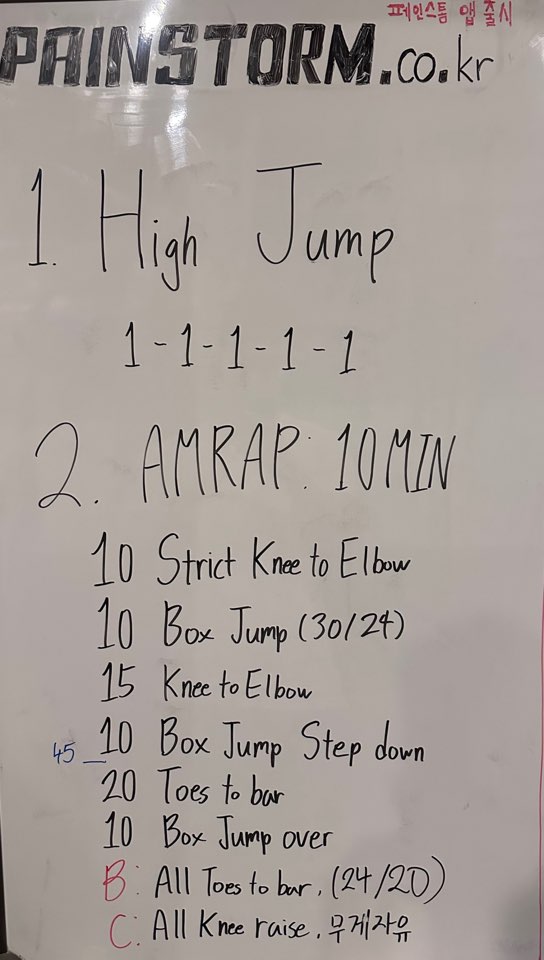 페인스톰 앱 출시
PAINSTORM.co.kr
1. High Jump
1-1-1-1-1
2. AMRAP: 10MIN
10 Strict Knee to Elbow
10 Box Jump (30/24)
15 Knee to Elbow
45 _ 10 Box Jump Step down
20 Toes to bar
10 Box Jump over
B: All Toes to bar. (24/20)
C: All Knee raise. 무게자유